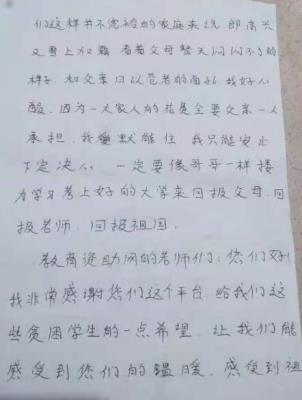 们这样并不富裕的家庭来说,那简直
又雪上加霜 看着父母整天闷闷不乐的
样子,和父亲日以苍老的面孔,我好心
酸,因为一大家人的花费全要父亲一人
承担,我 默 住 我只能安
下定决心 一定要像哥哥一样接
力学习考上好的大学来回报父母,回
报老师,回报祖国。
教育资助网的老师们:您们好!
我非常感谢您们这个平台,给我们这
些贫困学生的一点希望,让我们能
感受到您们的温暖,感受到祖